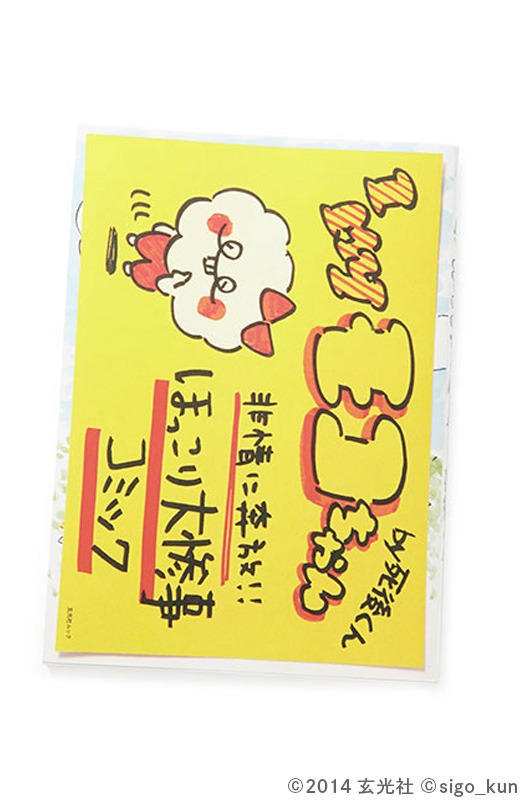 I My
モコちゃん
by 死後くん
非情に奔放!!
ほっこり大惨事
コミック
玄光社ムック
©2014 玄光社 ©sigo_kun